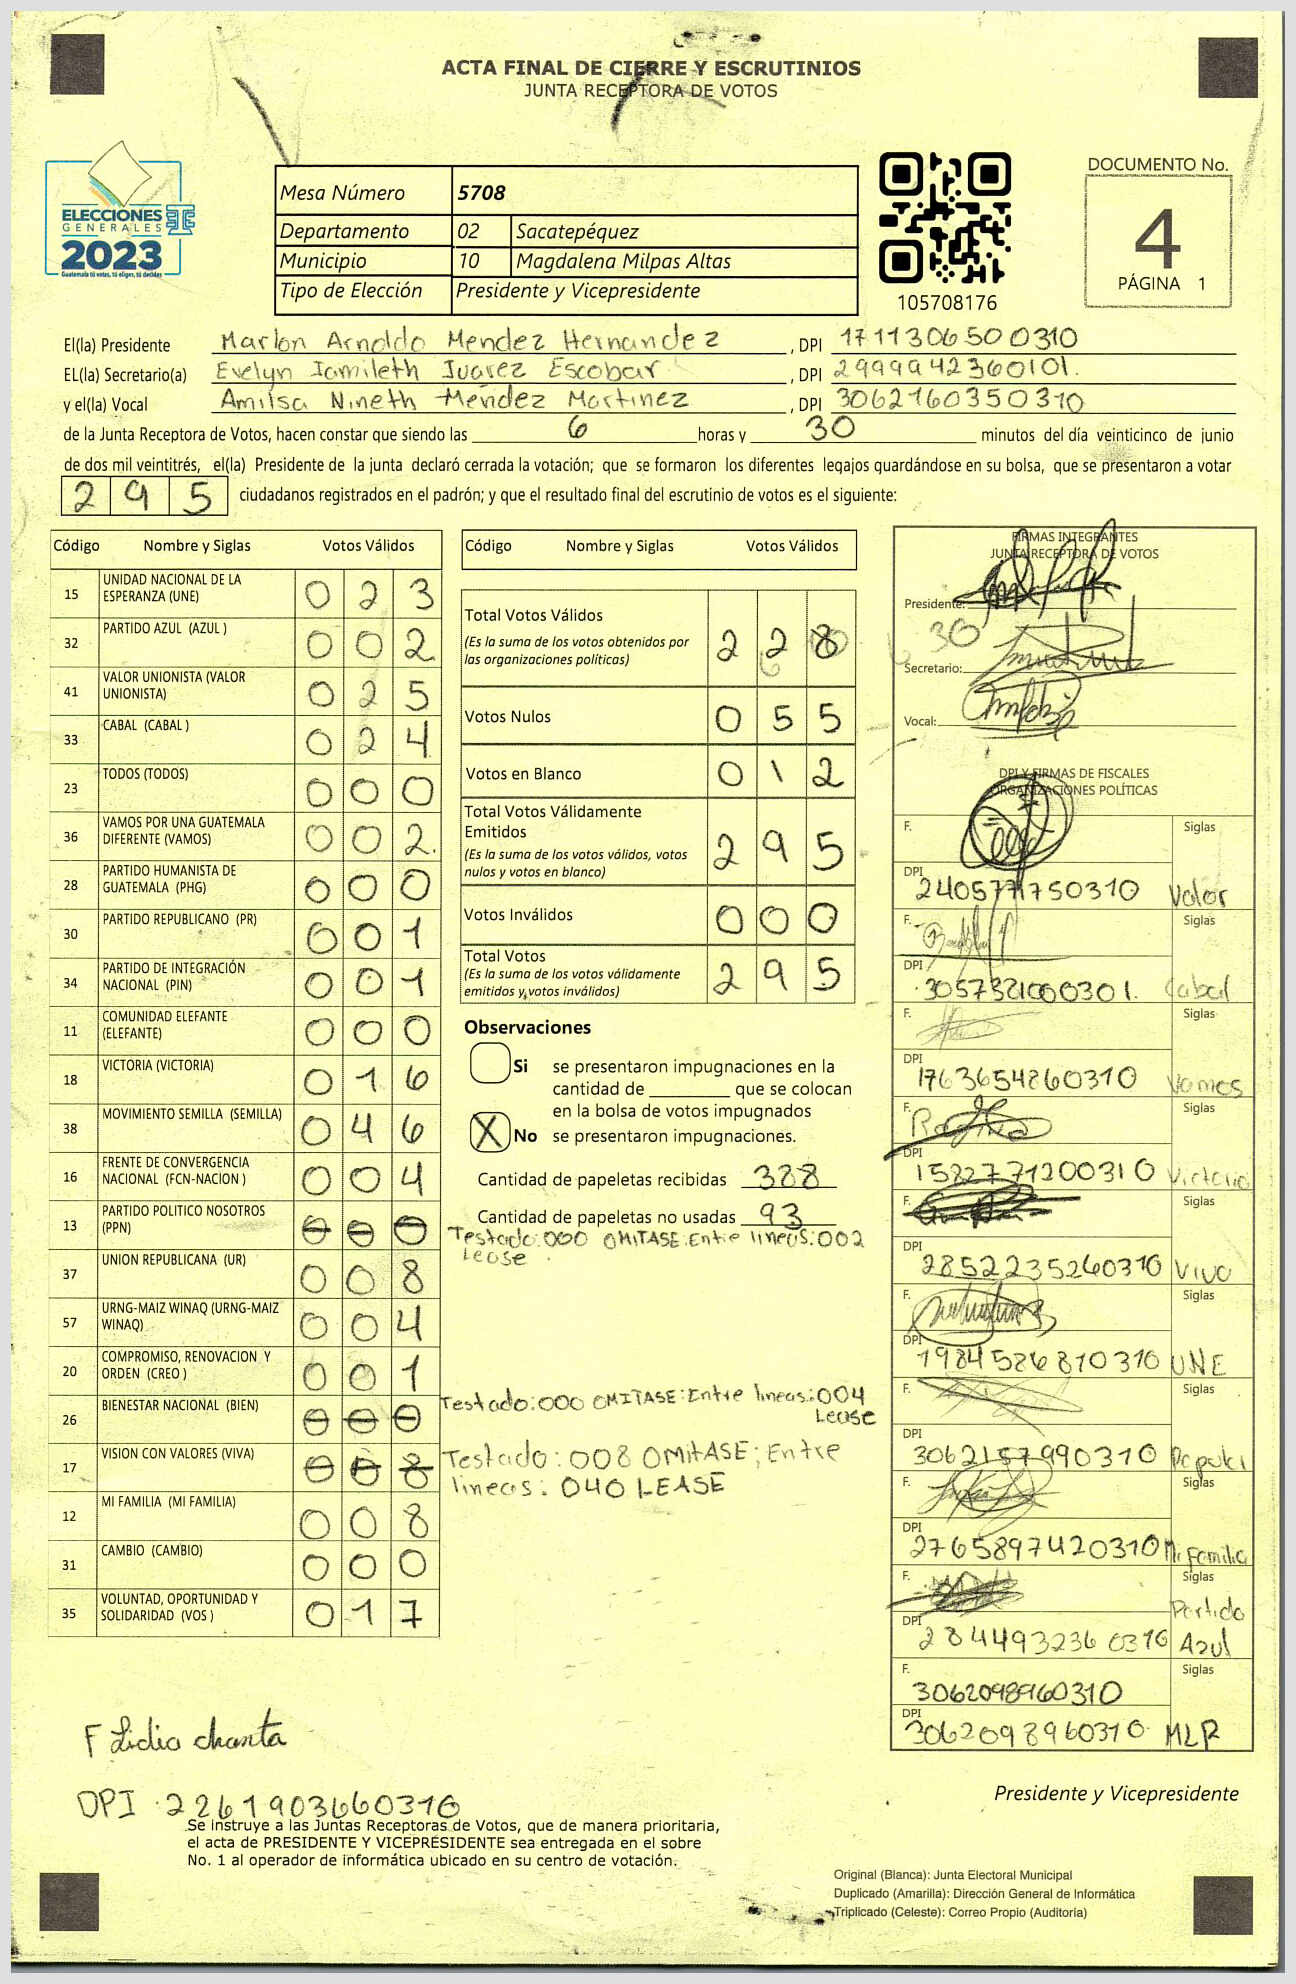 ACTA FINAL DE CIERRE Y ESCRUTINIOS
JUNTA RECEPTORA DE VOTOS
ELECCIONES
GENERALES
2023
Guatemala tú votas, tú eliges, tú decides
Mesa Número 5708
Departamento 02 Sacatepéquez
Municipio 10 Magdalena Milpas Altas
Tipo de Elección Presidente y Vicepresidente
105708176
DOCUMENTO No.
4
PÁGINA 1
El(la) Presidente Marlon Arnoldo Mendez Hernandez , DPI 1711306500310
EL(la) Secretario(a) Evelyn Iamileth Juarez Escobar , DPI 2999942360101.
y el(la) Vocal Amilsa Nineth Méndez Martinez , DPI 3062160350310
de la Junta Receptora de Votos, hacen constar que siendo las 6 horas y 30 minutos del día veinticinco de junio
de dos mil veintitrés, el(la) Presidente de la junta declaró cerrada la votación; que se formaron los diferentes legajos guardándose en su bolsa, que se presentaron a votar
295 ciudadanos registrados en el padrón; y que el resultado final del escrutinio de votos es el siguiente:
Código Nombre y Siglas Votos Válidos
15 UNIDAD NACIONAL DE LA ESPERANZA (UNE) 023
32 PARTIDO AZUL (AZUL ) 002
41 VALOR UNIONISTA (VALOR UNIONISTA) 025
33 CABAL (CABAL ) 024
23 TODOS (TODOS) 000
36 VAMOS POR UNA GUATEMALA DIFERENTE (VAMOS) 002.
28 PARTIDO HUMANISTA DE GUATEMALA (PHG) 000
30 PARTIDO REPUBLICANO (PR) 001
34 PARTIDO DE INTEGRACIÓN NACIONAL (PIN) 001
11 COMUNIDAD ELEFANTE (ELEFANTE) 000
18 VICTORIA (VICTORIA) 016
38 MOVIMIENTO SEMILLA (SEMILLA) 046
16 FRENTE DE CONVERGENCIA NACIONAL (FCN-NACION ) 004
13 PARTIDO POLITICO NOSOTROS (PPN) 000
Testado:000 OMITASE:Entre lineas:002
Lease
37 UNION REPUBLICANA (UR) 008
57 URNG-MAIZ WINAQ (URNG-MAIZ WINAQ) 004
20 COMPROMISO, RENOVACION Y ORDEN (CREO ) 001
26 BIENESTAR NACIONAL (BIEN) 000
Testado:000 OMITASE:Entre lineas:004
Lease
17 VISION CON VALORES (VIVA) 008
Testado:008 OMITASE;Entre
lineas: 040 LEASE
12 MI FAMILIA (MI FAMILIA) 008
31 CAMBIO (CAMBIO) 000
35 VOLUNTAD, OPORTUNIDAD Y SOLIDARIDAD (VOS ) 017
Código Nombre y Siglas Votos Válidos
Total Votos Válidos 228
(Es la suma de los votos obtenidos por
las organizaciones políticas)
Votos Nulos 055
Votos en Blanco 012
Total Votos Válidamente
Emitidos 295
(Es la suma de los votos válidos, votos
nulos y votos en blanco)
Votos Inválidos 000
Total Votos 295
(Es la suma de los votos válidamente
emitidos y votos inválidos)
Observaciones
Si se presentaron impugnaciones en la
cantidad de ________ que se colocan
en la bolsa de votos impugnados
X No se presentaron impugnaciones.
Cantidad de papeletas recibidas 388
Cantidad de papeletas no usadas 93
FIRMAS INTEGRANTES
JUNTA RECEPTORA DE VOTOS
Presidente:
30
Secretario:
Vocal:
DPI Y FIRMAS DE FISCALES
ORGANIZACIONES POLÍTICAS
F. Siglas
DPI 2405771750310 Valor
F. Siglas
DPI 3057321000301. Cabal
F. Siglas
DPI 1763654860310 Vamos
F. Siglas
DPI 1582771200310 Victoria
F. Siglas
DPI 2852235260310 VIVA
F. Siglas
DPI 1984526810310 UNE
F. Siglas
DPI 3062157990310
F. Siglas
DPI 2765897420310 Mi familia
F. Siglas
Partido
DPI 2844932360310 Azul
F. Siglas
3062098960310
DPI 3062098960310 MLP
F Lidia chanta
DPI 2261903660310
Presidente y Vicepresidente
Se instruye a las Juntas Receptoras de Votos, que de manera prioritaria,
el acta de PRESIDENTE Y VICEPRESIDENTE sea entregada en el sobre
No. 1 al operador de informática ubicado en su centro de votación.
Original (Blanca): Junta Electoral Municipal
Duplicado (Amarilla): Dirección General de Informática
Triplicado (Celeste): Correo Propio (Auditoría)